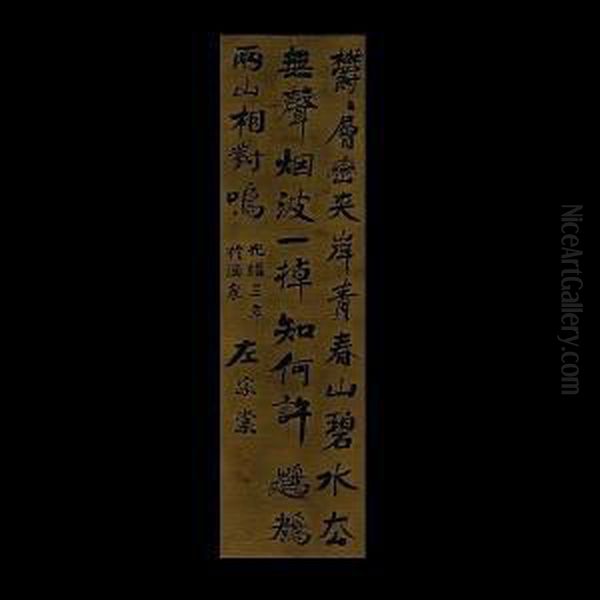 鬱〻層巒夾岸青春山碧水去
無聲烟波一棹知何許鶗鴂
兩山相對鳴
光緒三年
於酒泉
左宗棠
NiceArtGallery.com